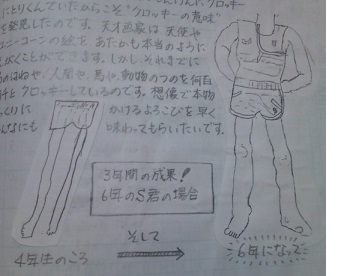 にとりくんでいたからこそ"クロッキーの意味"
を発見したのです。天才画家は天使や
ニーコーンの絵をあたかも本当のように
くことができます。しかし、それまでに
のはねや、人間や、馬や、動物のつのを何百
とクロッキーしているのです。想像で本物
っくりに かけるよろこびを早く
んなにも 味わってもらいたいです。
3年間の成果!
6年のS君の場合
そして
4年生のころ
6年になって